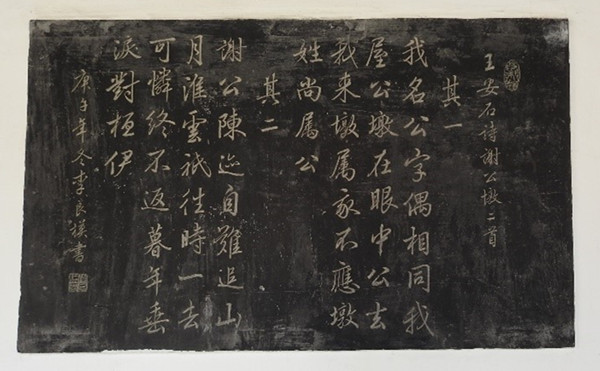 王安石诗謝公墩二首
其一
我名公字偶相同我
屋公墩在眼中公去
我来墩属我不應墩
姓尚属公
其二
謝公陳迹自難追山
月淮雲祇往時一去
可憐终不返暮年垂
淚對桓伊
庚午年冬李良模書